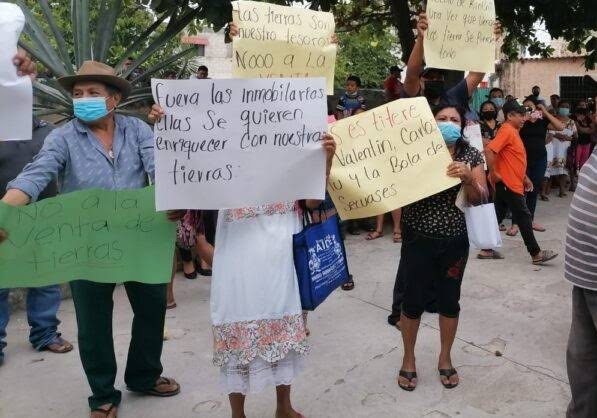 las tierras son
nuestro tesoro
NOOO A LA
una Vez que vendes
las tierras Se pierde
todo
Fuera las inmobilarias
ellas Se quieren
enriquecer con nuestras
tierras.
Ses titere
Valentin, Carlo
Tu y la Bola de
Secuases
No a la
Venta de
tierras